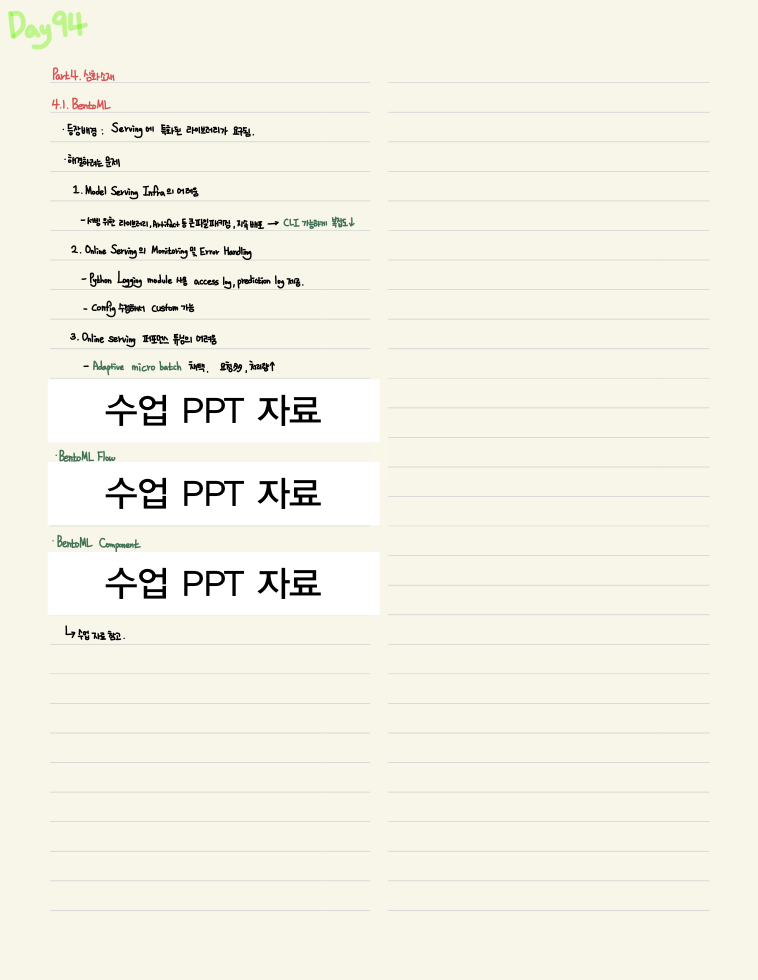 Day94
Part4. 심화소재
4.1. BentoML
· 등장배경 : Serving에 특화된 라이브러리가 요구됨.
· 해결하려는 문제
1. Model Serving Infra의 어려움
- 서빙 위한 라이브러리, Artifact 등 큰파일 패키징, 지속 배포 → CLI 가능하게 복잡도↓
2. Online Serving의 Monitoring 및 Error Handling
- Python Logging module 사용 access log, prediction log 저장.
- Config 수정해서 custom 가능
3. Online serving 퍼포먼스 튜닝의 어려움
- Adaptive micro batch 채택. 처리량↑
수업 PPT 자료
· BentoML Flow
수업 PPT 자료
· BentoML Component
수업 PPT 자료
↳ 수업 자료 참고.